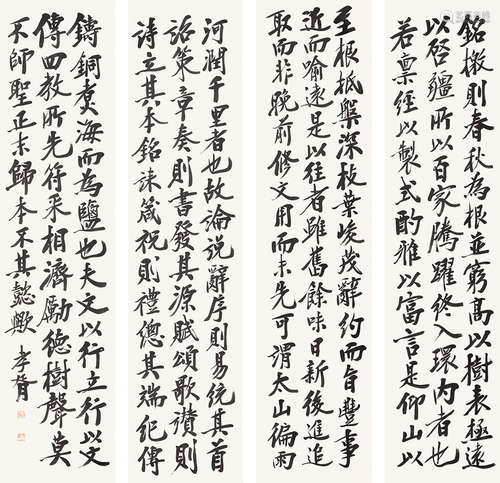 至根柢槃深枝葉峻茂辭約而旨豐事
近而喻遠是以往者雖舊餘味日新後進追
取而非晚前修文用而未先可謂太山徧雨
河潤千里者也故論說辭序則易統其首
詔策章奏則書發其源賦頌歌讃則
詩立其本銘誄箴祝則禮總其端紀傳
銘檄則春秋為根並窮高以樹表極遠
以啓疆所以百家騰躍終入環內者也
若稟經以製式酌雅以富言是仰山以
鑄銅煑海而為鹽也夫文以行立行以文
傳四教所先符采相濟勵德樹聲莫
不師聖正末歸本不其懿歟 李